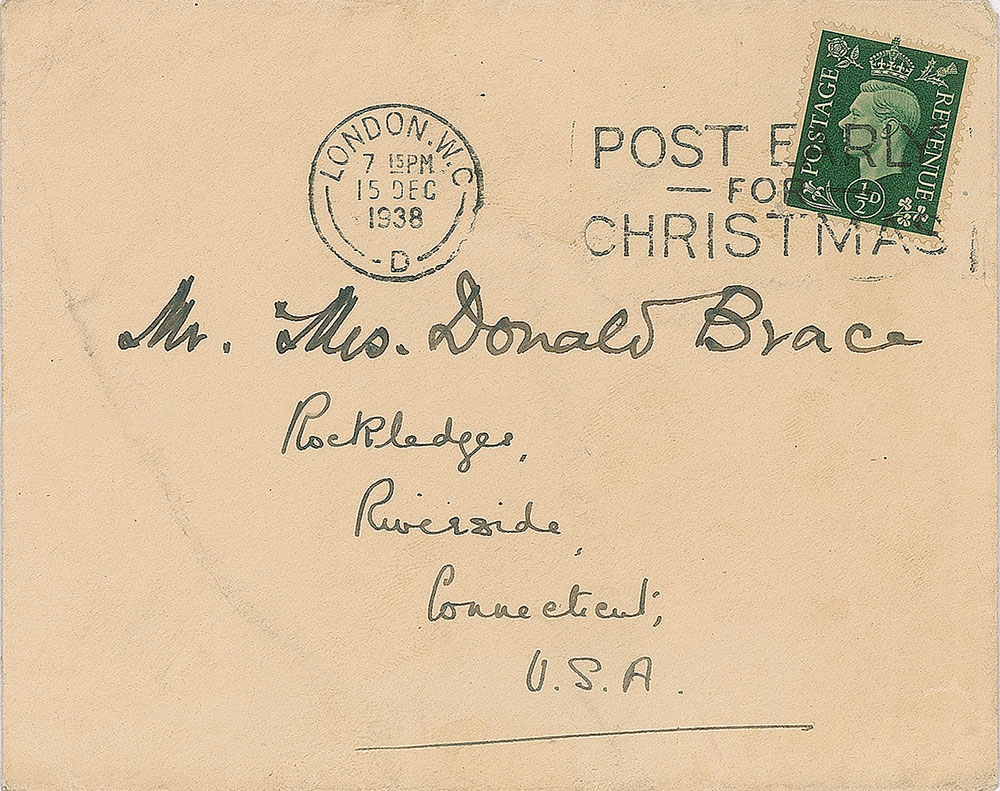 POSTAGE REVENUE
½D
LONDON.W.C
7 15PM
15 DEC
1938
-D-
POST EARLY
— FOR —
CHRISTMAS
Mr. Mrs. Donald Brace
Rockledges,
Riverside,
Connecticut,
U.S.A.